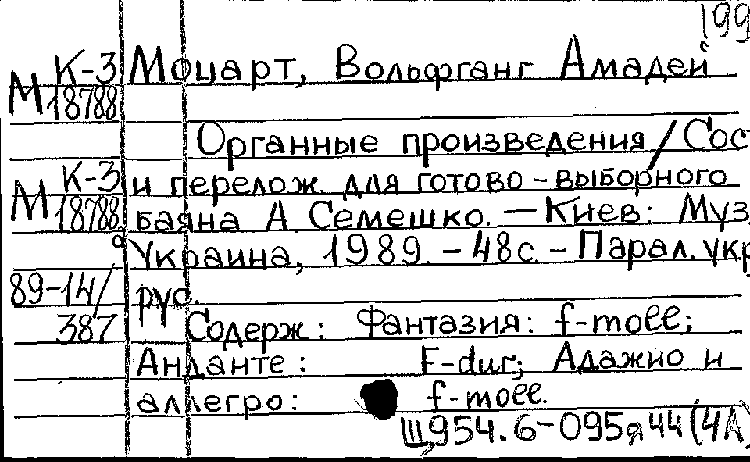 199
К-3 Моцарт, Вольфганг Амадей
М 18788
Органные произведения / Сос
К-3 и перелож. для готово-выборного
М 18788 баяна А Семешко. — Киев: Муз.
а Украина, 1989. - 48с. - Парал. укр
89-14/ рус.
387 Содерж: Фантазия: f-moll;
Анданте: F-dur; Адажио и
аллегро: f-moll.
Щ954.6-095я44(4А)